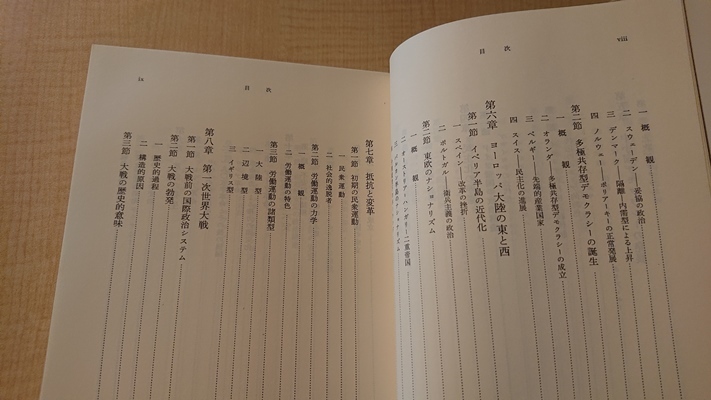 viii
目次
一 概観
二 スウェーデン――妥協の政治
三 デンマーク――隔離・内需型による上昇
四 ノルウェー――ポリアーキーの正常発展
第二節 多極共存型デモクラシーの誕生
一 概観
二 オランダ――多極共存型デモクラシーの成立
三 ベルギー――先端的産業国家
四 スイス――民主化の進展
第六章 ヨーロッパ大陸の東と西
第一節 イベリア半島の近代化
一 スペイン――改革の挫折
二 ポルトガル――衛兵主義の政治
第二節 東欧のナショナリズム
一 概観
二 オーストリア・ハンガリー二重帝国
目次
ix
第七章 抵抗と変革
第一節 初期の民衆運動
一 民衆運動
二 社会的逸脱者
第二節 労働運動の力学
一 概観
二 労働運動の特色
第三節 労働運動の諸類型
一 大陸型
二 辺境型
三 イギリス型
第八章 第一次世界大戦
第一節 大戦前の国際政治システム
第二節 大戦の勃発
一 歴史的過程
二 構造的原因
第三節 大戦の歴史的意味